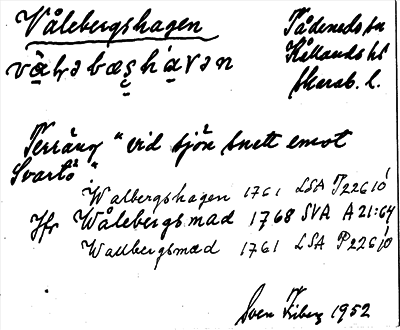 Vålebergshagen
Tådeneds sn
Kållands hd
Skarab. l.
Terräng "vid sjön snett emot
Svartö".
Walbergshagen 1761 LSA P22610
Jfr Wålebergsmad 1768 SVA A 21:64
Wallbergsmad 1761 LSA P22610
Sven Friberg 1952